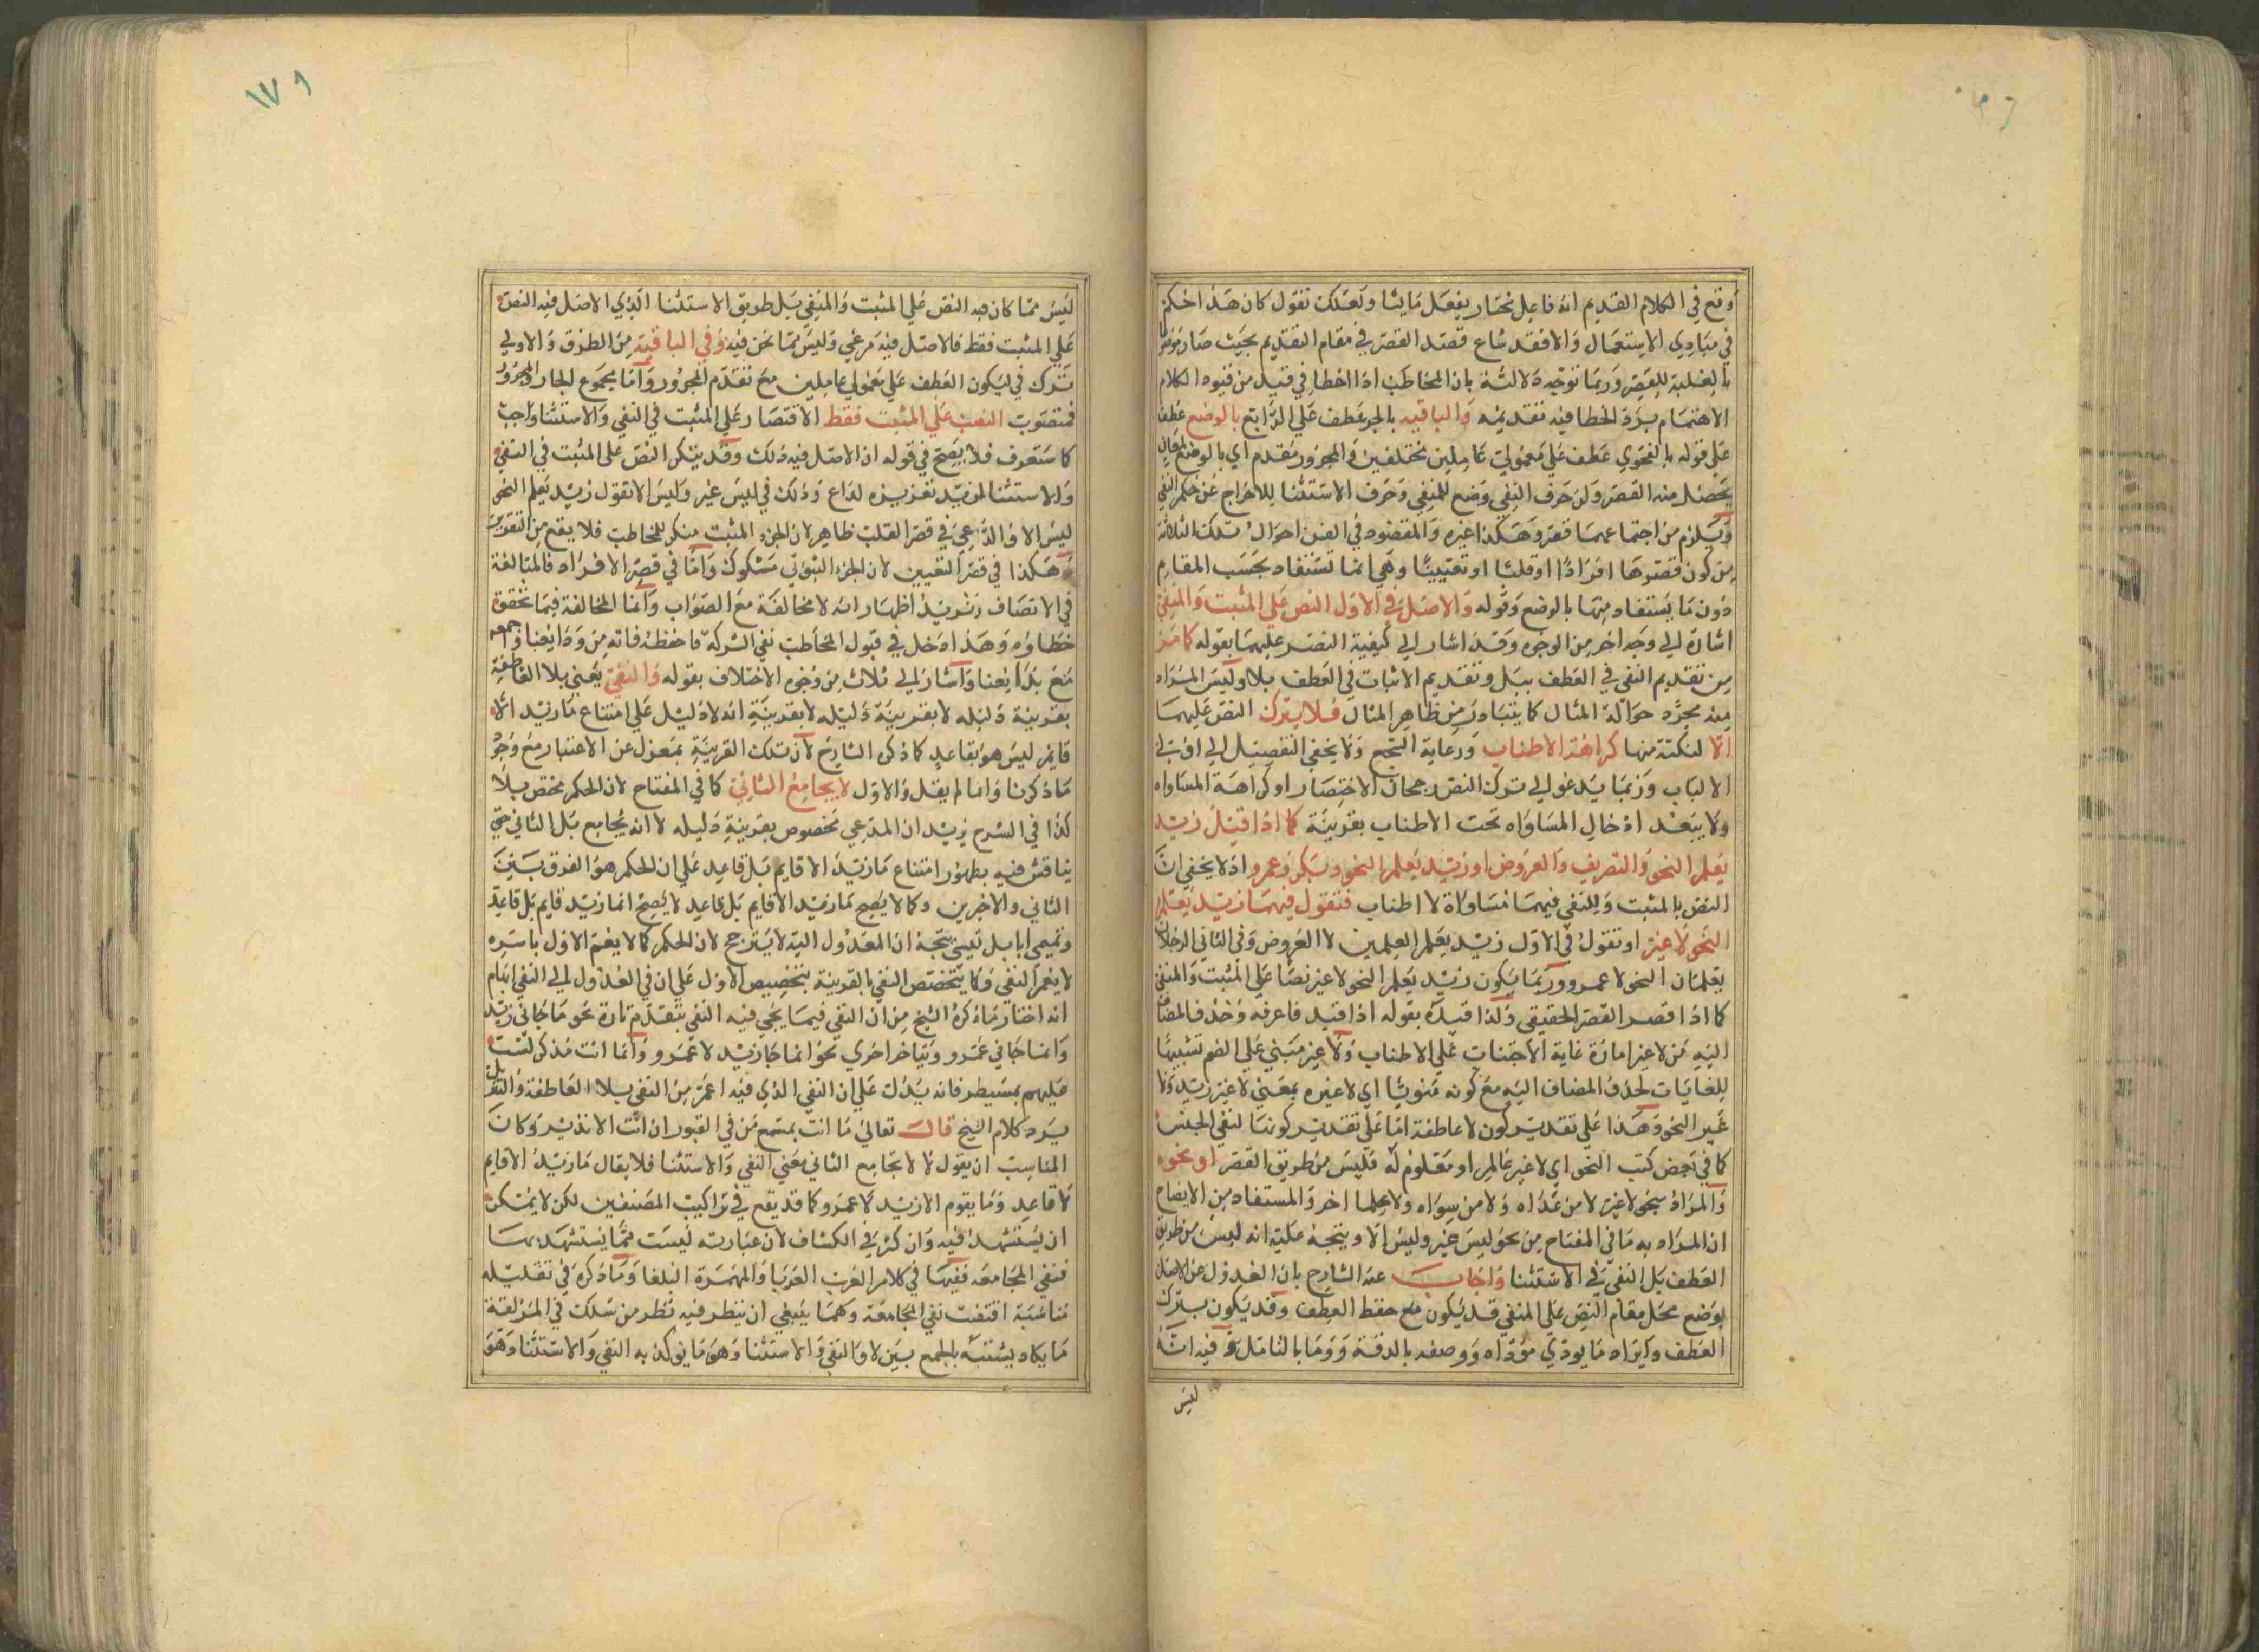 وقع في الكلام القديم انه فاعل مختار يفعل ما يشا ولعلك تقول كان هذا حكم
في مبادي الاستعمال والا فقد شاع قصد القصر في مقام التقديم بحيث صار
بالغلبة للقصر وربما توجه دلالته بان المخاطب اذا اخطا في قيد من قيود الكلام
الاهتمام برد الخطا فيه تقديمه والباقيه بالجر عطف علي الرابع بالوضع عطف
علي قوله بالفحوي عطف علي معمولي عاملين مختلفين والمجرور مقدم اي بالوضع لمعان
يحصل منه القصر ولن حرف النفي وضع للمنفي وحرف الاستثنا للاخراج عن حكم النفي
ويلزم من اجتماعهما قصر وهكذا غيره والمقصود في الفن احوال تلك الثلاثة
من كون قصرها افرادا او قلبا او تعيينا وهي انما تستفاد بحسب المقام
دون ما يستفاد منها بالوضع وقوله والاصل في الاول النص علي المثبت والمنفي
اشارة الي وجه اخر من الوجوه وقد اشار الي كيفية النص عليهما بقوله كما مر
من تقديم النفي في العطف ببل وتقديم الاثبات في العطف بلا وليس المراد
منه مجرد حوالة المثال كما يتبادر من ظاهر المثال فلا يترك النص عليهما
الا لنكتة منها كراهة الاطناب ورعاية السجع ولا يخفي التفصيل الي اولي
الالباب وربما يدعو الي ترك النص رجحان الاختصار او كراهة المساواه
ولا يبعد ادخال المساواه تحت الاطناب بقرينة كما اذا قيل زيد
يعلم النحو والتصريف والعروض او زيد يعلم النحو وبكر وعمرو اذ لا يخفي ان
النص بالمثبت وللنفي فيهما مساواة لا اطناب فتقول فيهما زيد يعلم
النحو لا غير او تقول في الاول زيد يعلم العلمين لا العروض وفي الثاني الرجلان
يعلمان النحو لا عمرو وربما يكون زيد يعلم النحو لا غير نصا علي المثبت والمنفي
كما اذا قصد القصر الحقيقي ولذا قيده بقوله اذا قيد فاعرفه وحذف المضاف
اليه من لا غير امارة غاية الاجتناب علي الاطناب ولا غير مبني علي الضم تشبيها
للغايات لحذف المضاف اليه مع كونه منويا اي لا غيره بمعني لا غير زيد ولا
غير النحو وهذا علي تقدير كون لا عاطفة اما علي تقدير كونها لنفي الجنس
كما في بعض كتب النحو اي لا غير عالم او معلوم له فليس من طريق القصر او نحوه
والمراد بنحو لا غير لا من عداه ولا من سواه ولا علما اخر والمستفاد من الايضاح
ان المراد به ما في المفتاح من نحو ليس غير وليس الا ويتجه عليه انه ليس من طريق
العطف بل النفي في الاستثنا واجاب عنه الشارح بان العدول عن الاصل
بوضع محل مقام النص علي المنفي قد يكون مع حفظ العطف وقد يكون بترك
العطف وايراد ما يودي موداه ووصفه بالدقة ووما بالتامل وفيه انه
ليس
١٧٩
ليس مما كان فيه النص علي المثبت والمنفي بل طريق الاستثنا الذي الاصل فيه النص
علي المثبت فقط فالاصل فيه مرعي وليس مما نحن فيه وفي الباقية من الطرق والاولي
ترك في ليكون العطف علي معمولي عاملين مع تقدم المجرور واما مجموع الجار والمجرور
فمنصوب النص علي المثبت فقط الاقتصار علي المثبت في النفي والاستثنا واجب
كما ستعرف فلا يصح في قوله ان الاصل فيه ذلك وقد يترك النص علي المثبت في النفي
والاستثنا لمزيد تعزيزه لداع وذلك في ليس غير وليس الا تقول زيد يعلم النحو
ليس الا والداعي في قصر القلب ظاهر لان الجزء المثبت منكر للمخاطب فلا يقع من
وهكذا في قصر التعيين لان الجزء الثبوتي مشكوك واما في قصر الافراد فالمبالغة
في الاتصاف وتريد اظهار انه لا مخالفة مع الصواب وانما المخالفة فيما تحقق
خطاؤه وهذا ادخل في قبول المخاطب نفي الشركة فاحفظه فانه من ودايعنا وجمعه
مع بدايعنا واشار الي ثلاث من وجوه الاختلاف بقوله والنفي يعني بلا العاطفة
بقرينة دليله لا بقرينة دليله لا بقرينة انه لا دليل علي امتناع ما زيد الا
قايم ليس هو بقاعد كما ذكره الشارح لان تلك القرينة بمعزل عن الاعتبار مع وجود
ما ذكرنا وانما لم يقل والاول لا يجامع الثاني كما في المفتاح لان الحكم مختص بلا
كذا في الشرح زيد ان المدعي مخصوص بقرينة دليله لا انه يجامع بل الثاني حتي
يناقش فيه بظهور امتناع ما زيد الا قايم بل قاعد علي ان الحكم هو الفرق بين
الثاني والاخرين وكما لا يصح ما زيد الا قايم بل قاعد لا يصح انما زيد قايم بل قاعد
وتميمي انا بل قيسي يتجه ان المعدول اليه لا يترجح لان الحكم كما لا يعم الاول باسره
لا يعم النفي وكما يتخصص النفي بالقرينة بتخصيص الاول علي ان في العدول الي النفي ابهام
انه اختار ما ذكره الشيخ من ان النفي فيما يجي فيه النفي يتقدم تارة نحو ما جاني زيد
وانما جاني عمرو ويتاخر اخري نحو انما جا زيد لا عمرو وانما انت مذكر لست
عليهم بمسيطر فانه يدل علي ان النفي الذي فيه اعم من النفي بلا العاطفة
يرد كلام الشيخ قال تعالي ما انت بمسمع من في القبور ان انت الا نذير وكان
المناسب ان يقول لا لا تجامع الثاني يعني النفي والاستثنا فلا يقال ما زيد الا قايم
لا قاعد وما يقوم الا زيد لا عمرو كما قد يقع في تراكيب المصنفين لكن لا يمكن
ان يستشهد فيه وان كثر في الكشاف لان عبارته ليست مما يستشهد بها
فنفي المجامعه ففيها في كلام العرب العربا والمهرة البلغا وما ذكره في تقليله
مناسبة اقتضت نفي المجامعة وكما ينبغي ان ينظر فيه نظر من سلك في المزلقة
ما يكاد يشتبه بالجمع بين لا والنفي والاستثنا وهو ما يوكد به النفي والاستثنا وهو